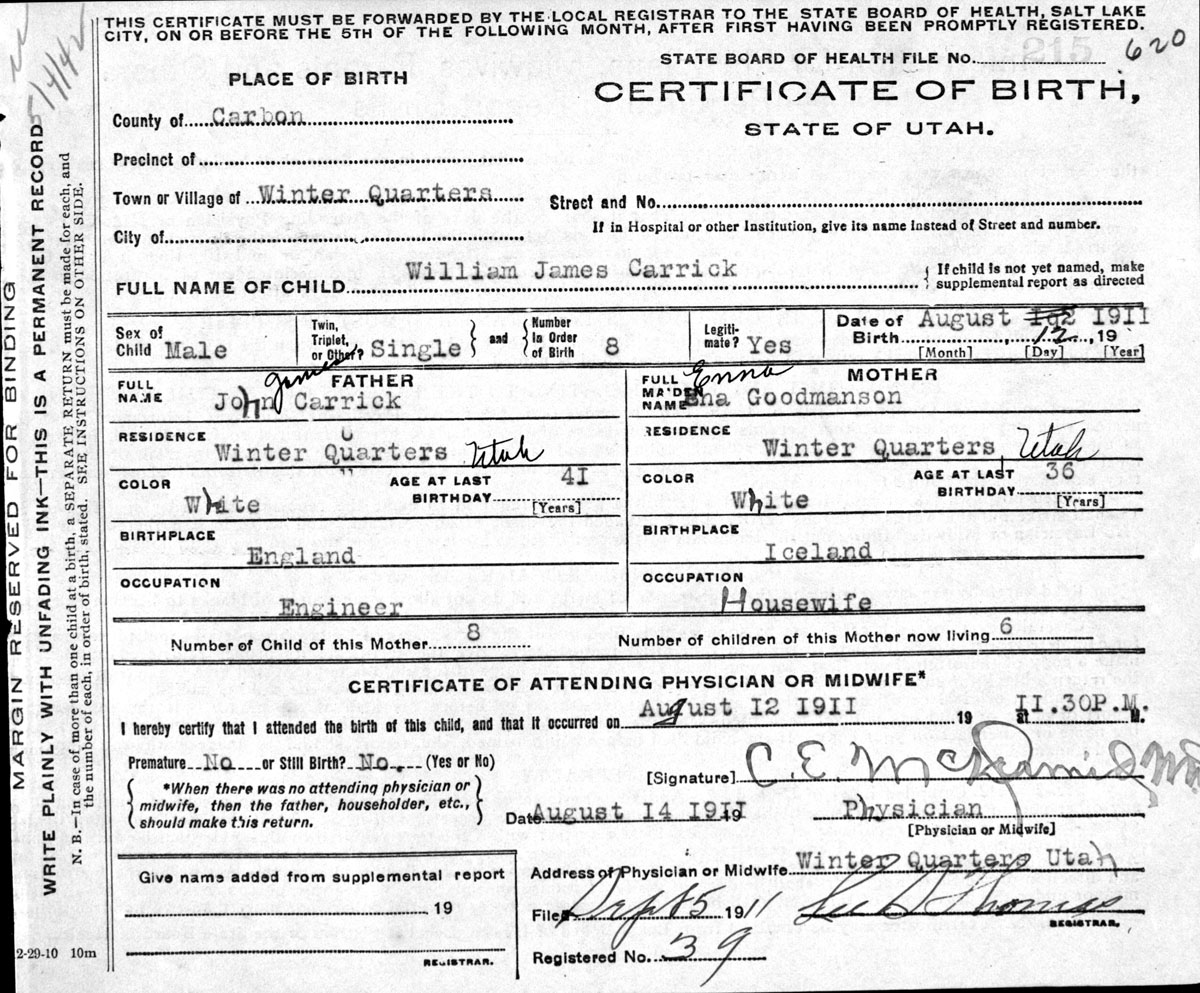 THIS CERTIFICATE MUST BE FORWARDED BY THE LOCAL REGISTRAR TO THE STATE BOARD OF HEALTH, SALT LAKE
CITY, ON OR BEFORE THE 5TH OF THE FOLLOWING MONTH, AFTER FIRST HAVING BEEN PROMPTLY REGISTERED.
5/4/42
MARGIN RESERVED FOR BINDING
WRITE PLAINLY WITH UNFADING INK—THIS IS A PERMANENT RECORD
N. B.—In case of more than one child at a birth, a SEPARATE RETURN must be made for each, and
the number of each, in order of birth, stated. SEE INSTRUCTIONS ON OTHER SIDE.
STATE BOARD OF HEALTH FILE No. 215 620
PLACE OF BIRTH
CERTIFICATE OF BIRTH,
STATE OF UTAH.
County of Carbon
Precinct of
Town or Village of Winter Quarters
Street and No.
City of
If in Hospital or other Institution, give its name instead of Street and number.
FULL NAME OF CHILD William James Carrick
If child is not yet named, make
supplemental report as directed
Sex of
Child Male
Twin,
Triplet,
or Other? Single
and
Number
in Order
of Birth 8
Legiti-
mate? Yes
Date of August 1911
Birth 12 , 19
[Month] [Day] [Year]
FULL
NAME
FATHER
James
John Carrick
FULL
MAIDEN
NAME
MOTHER
Enna
Ena Goodmanson
RESIDENCE
Winter Quarters Utah
RESIDENCE
Winter Quarters, Utah
COLOR
White
AGE AT LAST
BIRTHDAY 41
[Years]
COLOR
White
AGE AT LAST
BIRTHDAY 36
[Years]
BIRTHPLACE
England
BIRTHPLACE
Iceland
OCCUPATION
Engineer
OCCUPATION
Housewife
Number of Child of this Mother 8
Number of children of this Mother now living 6
CERTIFICATE OF ATTENDING PHYSICIAN OR MIDWIFE*
I hereby certify that I attended the birth of this child, and that it occurred on August 12 1911 19 at 11.30P.M. M.
Premature No or Still Birth? No. (Yes or No)
*When there was no attending physician or
midwife, then the father, householder, etc.,
should make this return.
[Signature] C. E.
Date August 14 1911 19
Physician
[Physician or Midwife]
Give name added from supplemental report
19
REGISTRAR.
Address of Physician or Midwife Winter Quarters Utah
Filed Sept 5 1911
Thomas
REGISTRAR.
Registered No. 39
2-29-10 10m